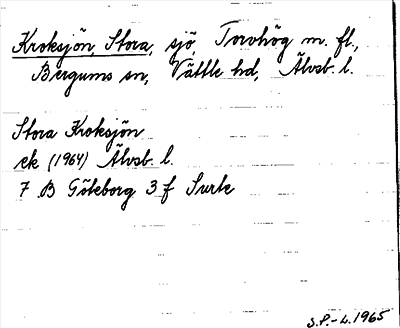 Kroksjön, Stora, sjö, Torvhög m. fl.,
Bergums sn, Vättle hd, Älvsb. l.
Stora Kroksjön
ek (1964) Älvsb. l.
7 B Göteborg 3 f Surte
S.P. - L. 1965